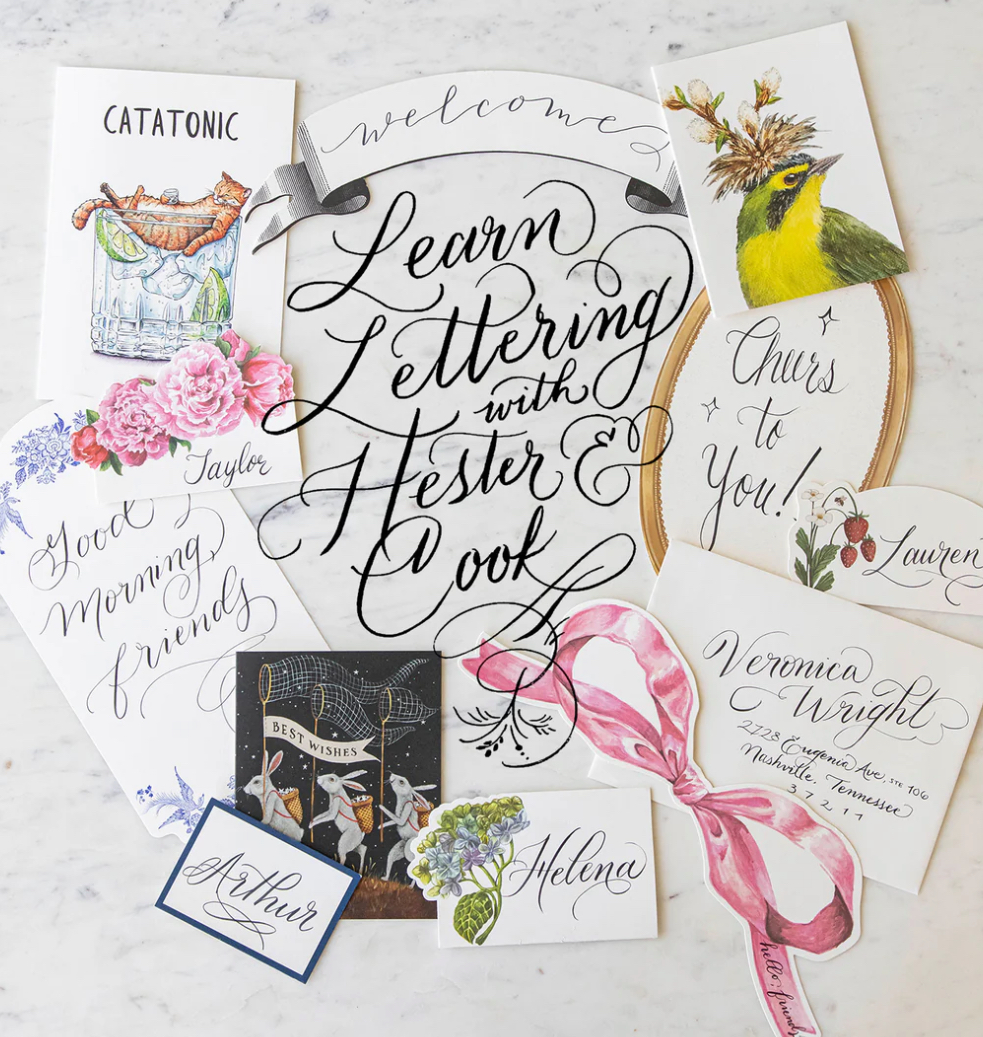 CATATONIC
welcome
Learn
Lettering
with
Hester &
Cook
Cheers
to
You!
Taylor
Lauren
Good
Morning,
friends
Veronica
Wright
2728 Eugenia Ave, STE 106
Nashville, Tennessee
37211
BEST WISHES
Arthur
Helena
hello, friends